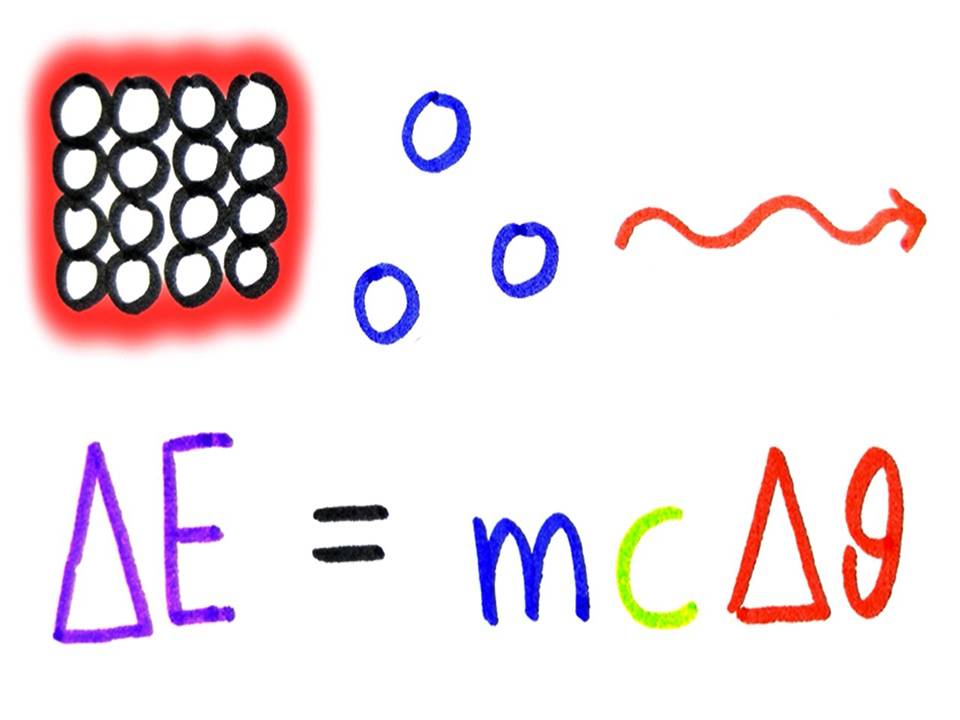 ΔE = mcΔϑ